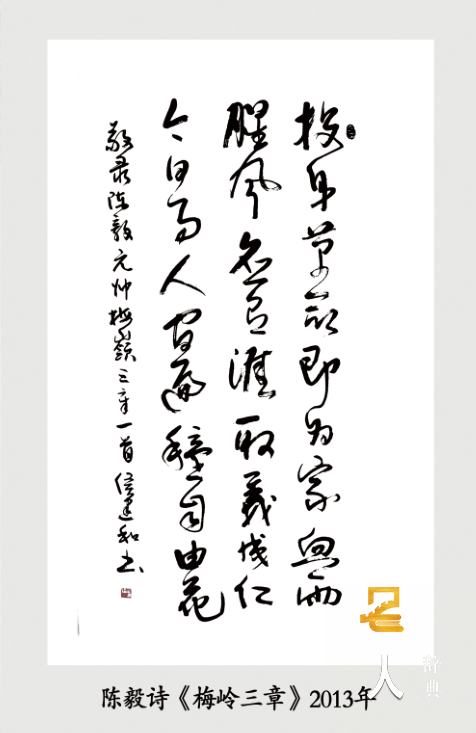 投身革命即为家血雨
腥风应有涯取義成仁
今日事人间遍種自由花
敬录陈毅元帅梅嶺三章一首侯建和书
人
辞典
陈毅诗《梅岭三章》2013年